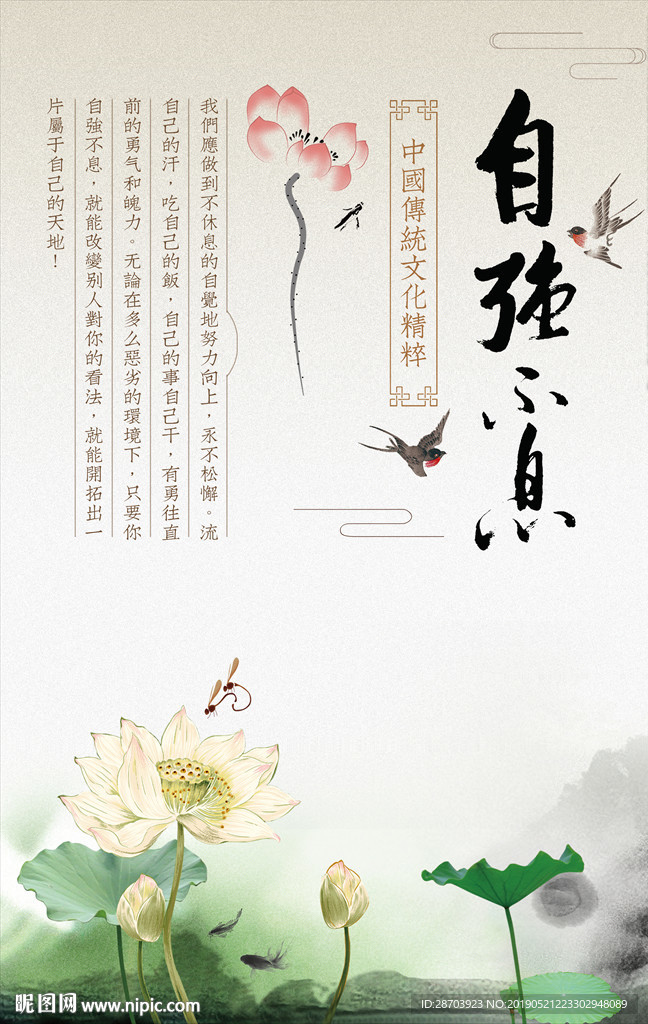 自強不息
中國傳統文化精粹
我們應做到不休息的自覺地努力向上，永不松懈。流
自己的汗，吃自己的飯，自己的事自己干，有勇往直
前的勇气和魄力。无論在多么惡劣的環境下，只要你
自強不息，就能改變別人對你的看法，就能開拓出一
片屬于自己的天地！
昵图网 www.nipic.com
ID:28703923 NO:20190521223302948089